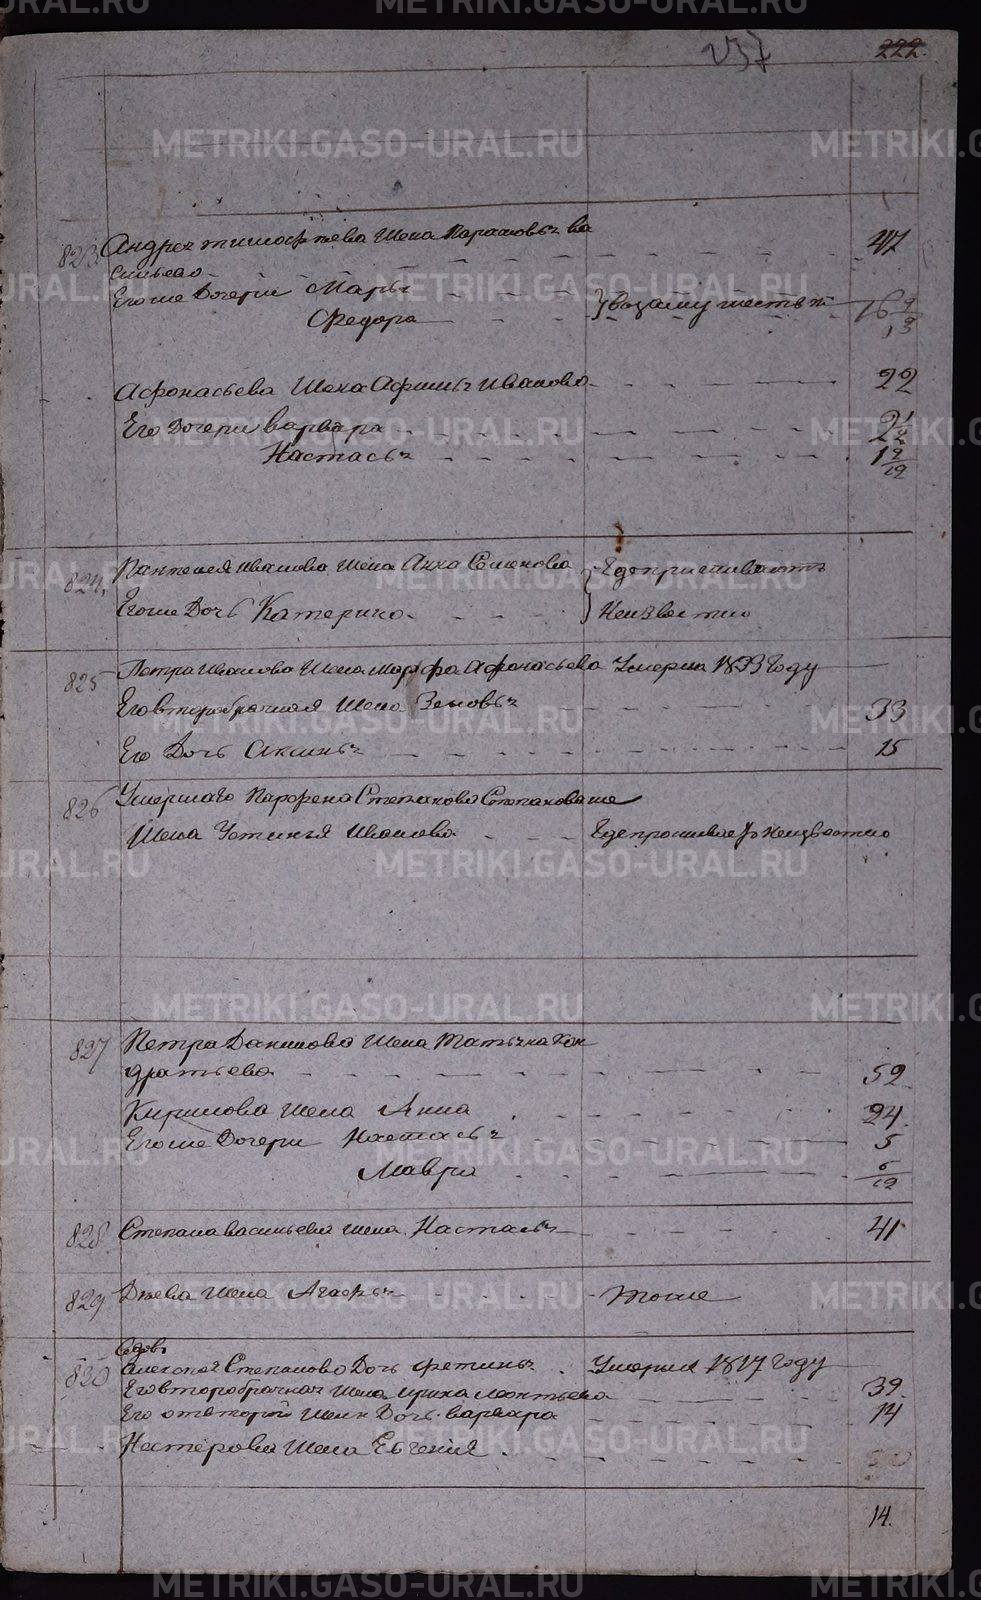 237
222.
823.
Андрея тимофеева Жена Парасковья ва
сильева 47
Егоже Дочери Марья
Федора } взамужестве
Афонасьева Жена Афимья Иванова 22
Его Дочери варвара
Настасья
824.
Пантелея иванова Жена Анна Семенова } Где проживают
Егоже Дочь Катерина Неизвестно
825
Петра Иванова Жена марфа Афонасьева Умерла 1833 Году
Его второбрачная Жена Зеновья 33
Его Дочь Аксинья 15
826
Умершаго Парфена Степанова Степановаже
Жена Устинья Иванова Где проживает Неизвестно
827
Петра Данилова Жена Татьяна Кон
дратьева 52
Кирилова Жена Анна 24.
Егоже Дочери Настасья 5
Мавра 6/12
828
Степана васильева Жена Настасья 41
829
Жена Агафья тоже
830
Алексея Степанова Дочь Фетинья Умерла 1817 Году
Его второбрачная Жена ирина леонтьева 39.
Его от второй Жены Дочь варвара 14
Нестерова Жена Евгения
14.